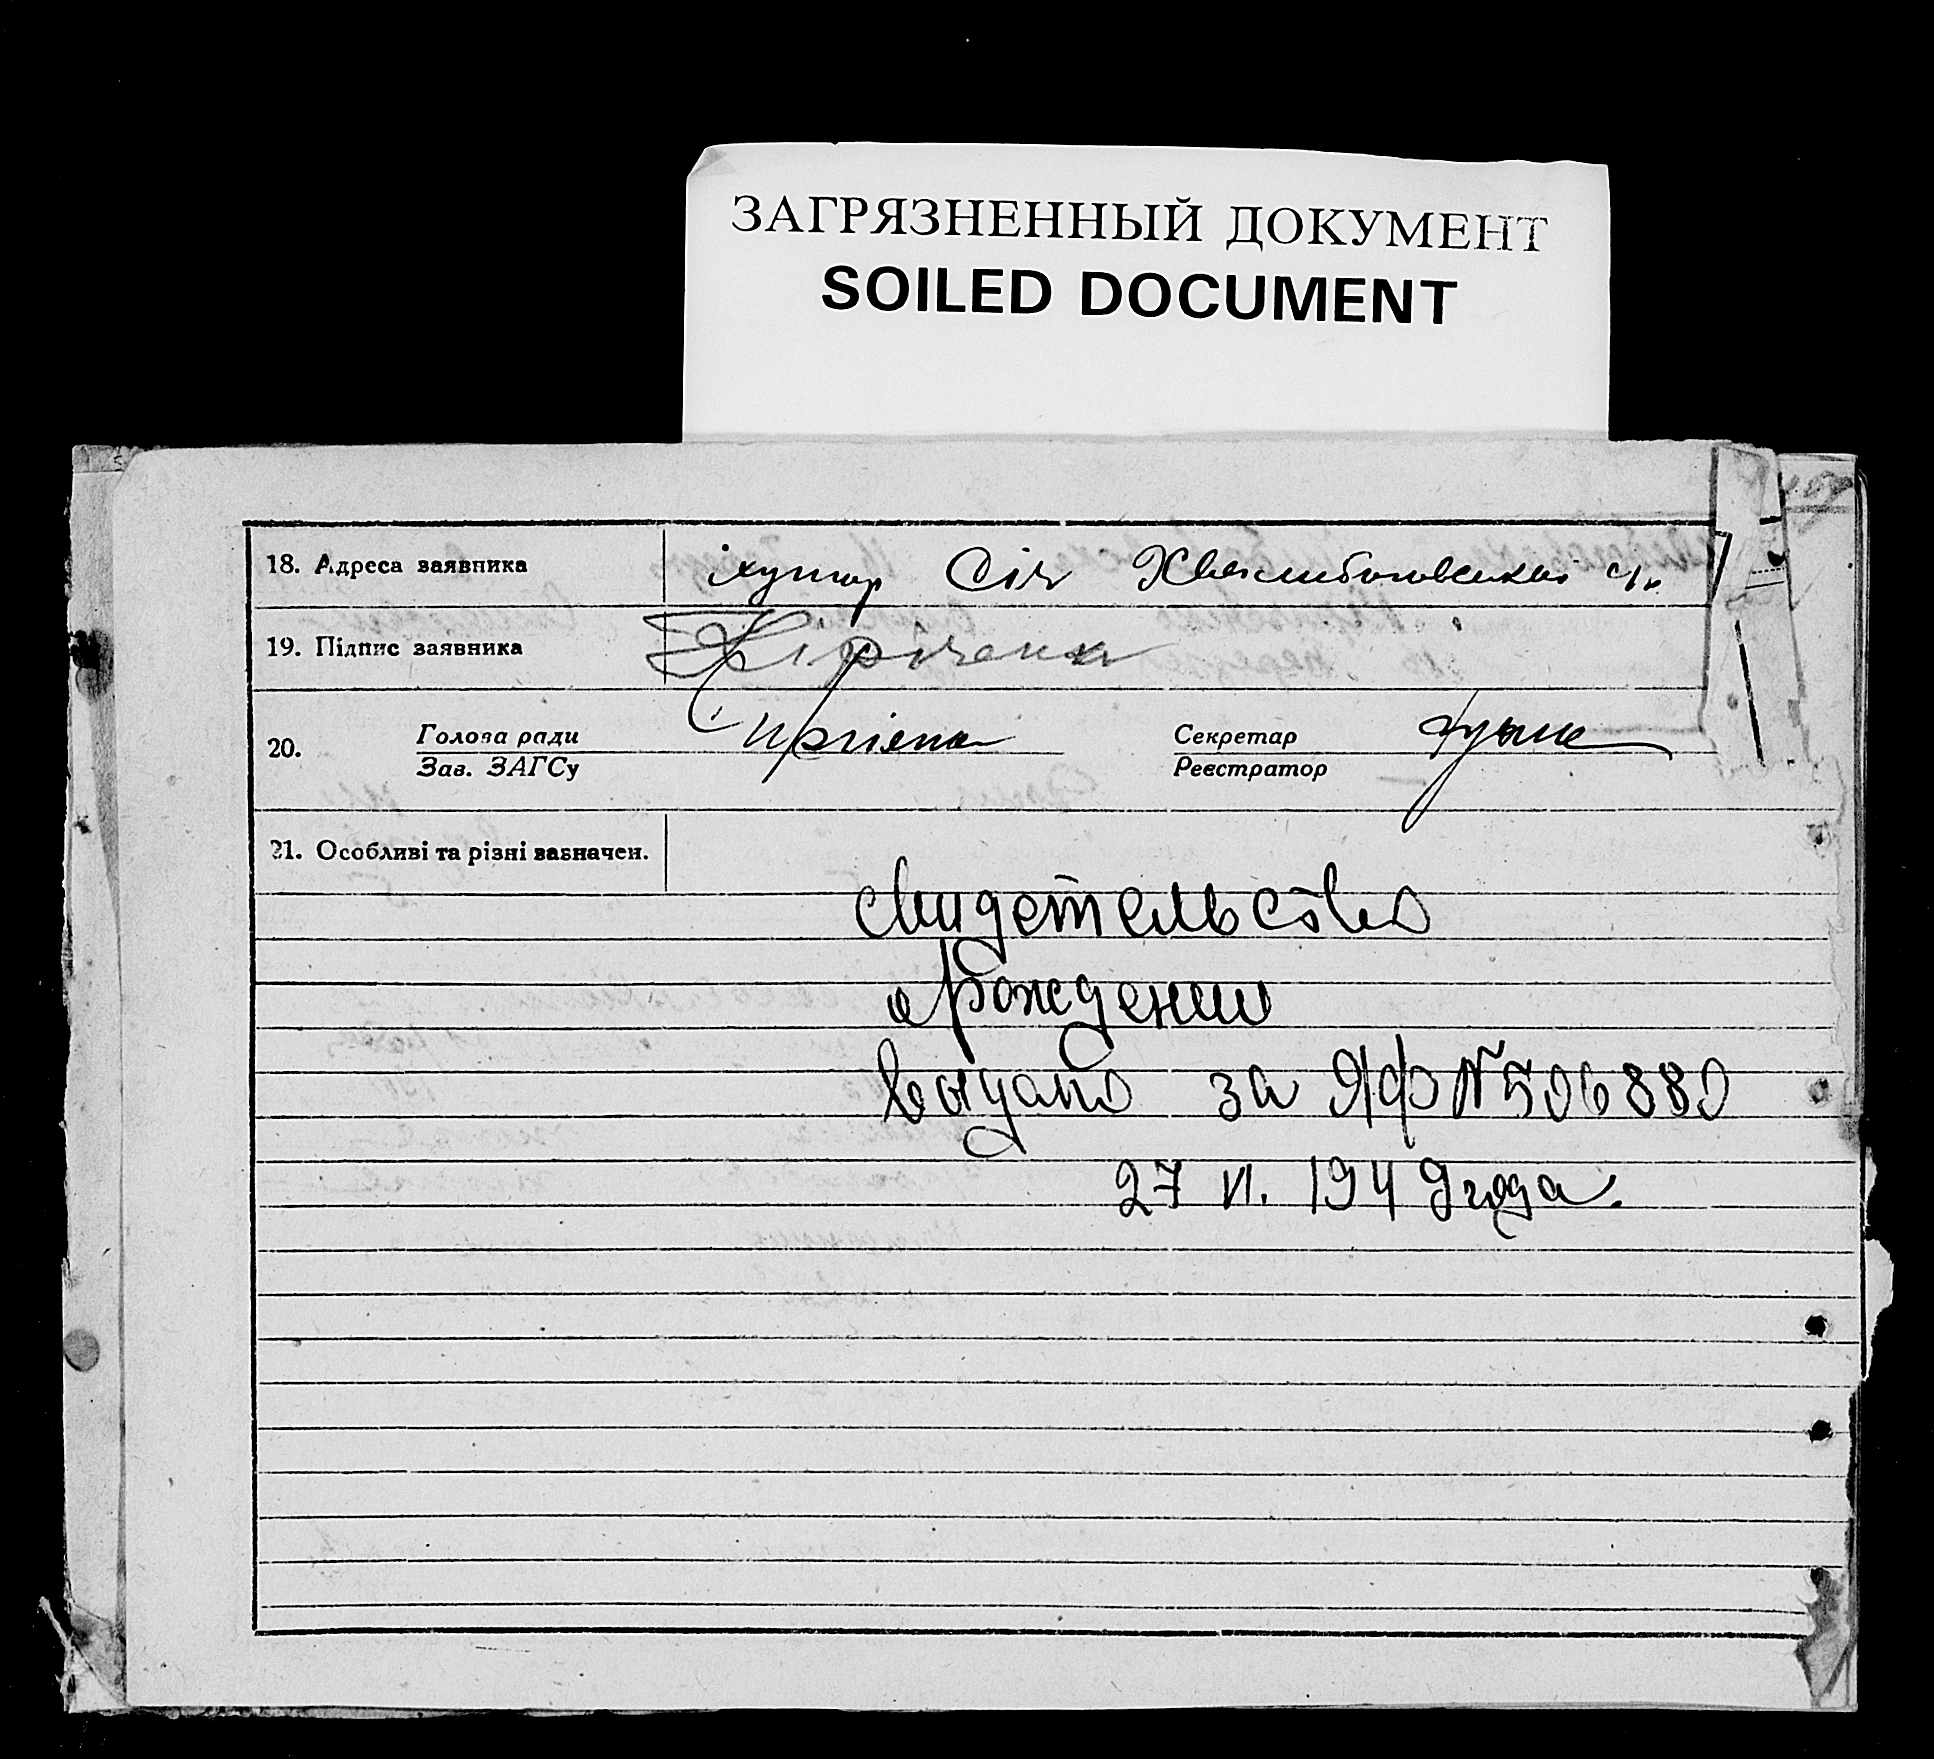 ЗАГРЯЗНЕННЫЙ ДОКУМЕНТ
SOILED DOCUMENT
18. Адреса заявника хутор Січ
19. Підпис заявника
20. Голова ради Секретар
Зав. ЗАГСу Реєстратор
21. Особливі та різні вазначен.
свидетельство
о Рождении
выдано за ЯФ № 506880
27 VI. 1949 года.